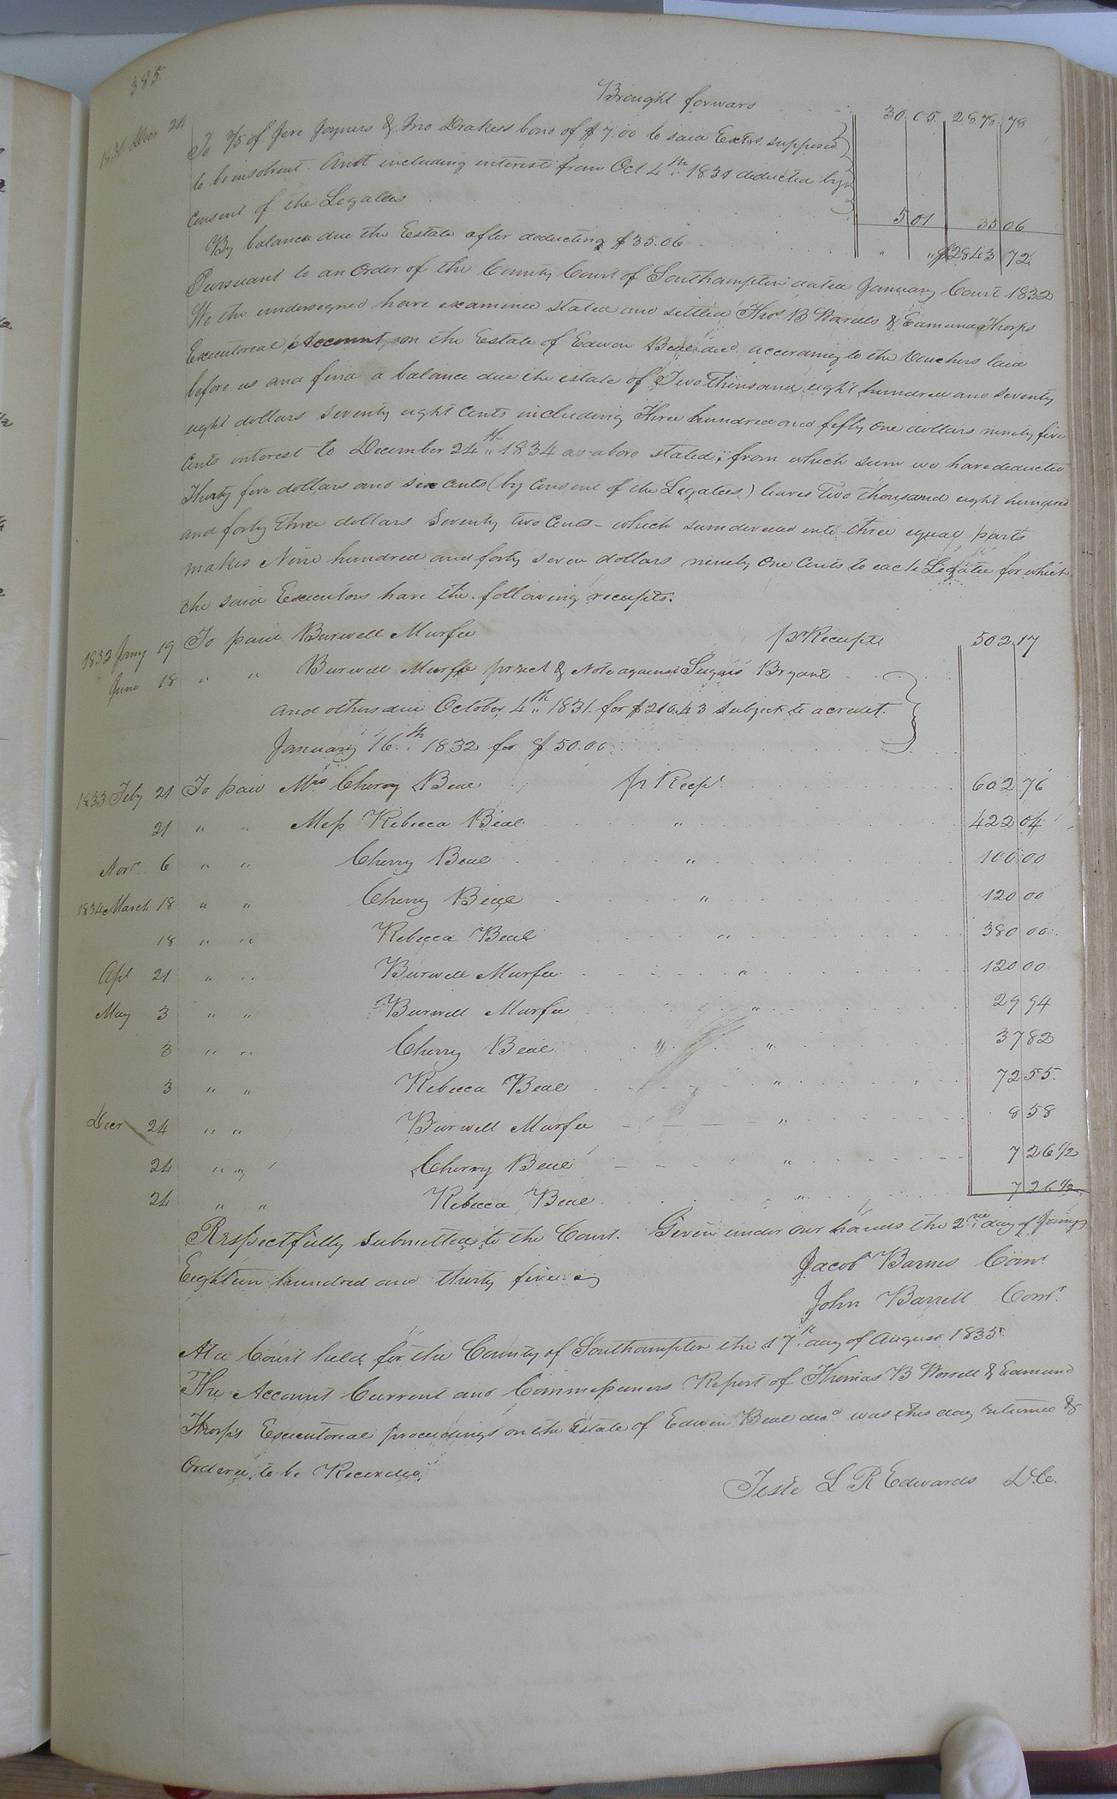 385
Brought forward 30 05 2878 78
1834 Decr 24 To 3/5 of Jere Joyners & Jno Drakes bond of $7.00 to said Extrs supposed
to be insolvent. Amt including interest from Oct 4th 1831 deducted by
consent of the Legatees 5 01 35 06
By balance due the Estate after deducting $35.06 " " $2843 72
Pursuant to an Order of the County Court of Southampton dated January Court 1832
We the undersigned have examined stated and settled Thos B Worrells & Edmund Thorps
Executorial Account, on the Estate of Edwin Beal decd according to the Vouchers laid
before us and find a balance due the estate of Two thousand eight hundred and seventy
eight dollars seventy eight Cents including Three hundred and fifty one dollars ninety five
Cents interest to December 24th 1834 as above stated; from which sum we have deducted
Thirty five dollars and six cents (by Consent of the Legatees) leaves Two thousand eight hundred
and forty three dollars Seventy two Cents - which sum divided into three equal parts
makes Nine hundred and forty seven dollars ninety one Cents to each Legatee for which
the said Executors have the following receipts.
1832 Jany 19 To paid Burwell Murfee pr Receipts 502 17
June 18 " " Burwell Murfee pr rect & Note against Sugars Bryant
and others due October 4th 1831 for $210.43 Subject to a credit
January 16th 1832 for $50.00
1833 Feby 21 To paid Mrs Cherry Beal pr Recpt 602 76
21 " " Miss Rebecca Beal " 422 04
Novr 6 " " Cherry Beal " 100 00
1834 March 18 " " Cherry Beal " 120 00
18 " " Rebecca Beal " 380 00
Apl 21 " " Burwell Murfee " 120 00
May 3 " " Burwell Murfee " 29 94
3 " " Cherry Beal " " 37 82
3 " " Rebecca Beal " 72 55
Decr 24 " " Burwell Murfee " 8 58
24 " " Cherry Beal " 7 26 1/2
24 " " Rebecca Beal " 7 26 1/2
Respectfully submitted to the Court. Given under our hands the 2nd day of Jany
Eighteen hundred and thirty five
Jacob Barnes Comr.
John Barrett Comr.
At a Court held for the County of Southampton the 17th day of August 1835
The Account Current and Commissioners Report of Thomas B Worrell & Edmund
Thorp's Executorial proceedings on the Estate of Edwin Beal decd was this day returned &
Ordered to be Recorded
Teste L R Edwards D.C.